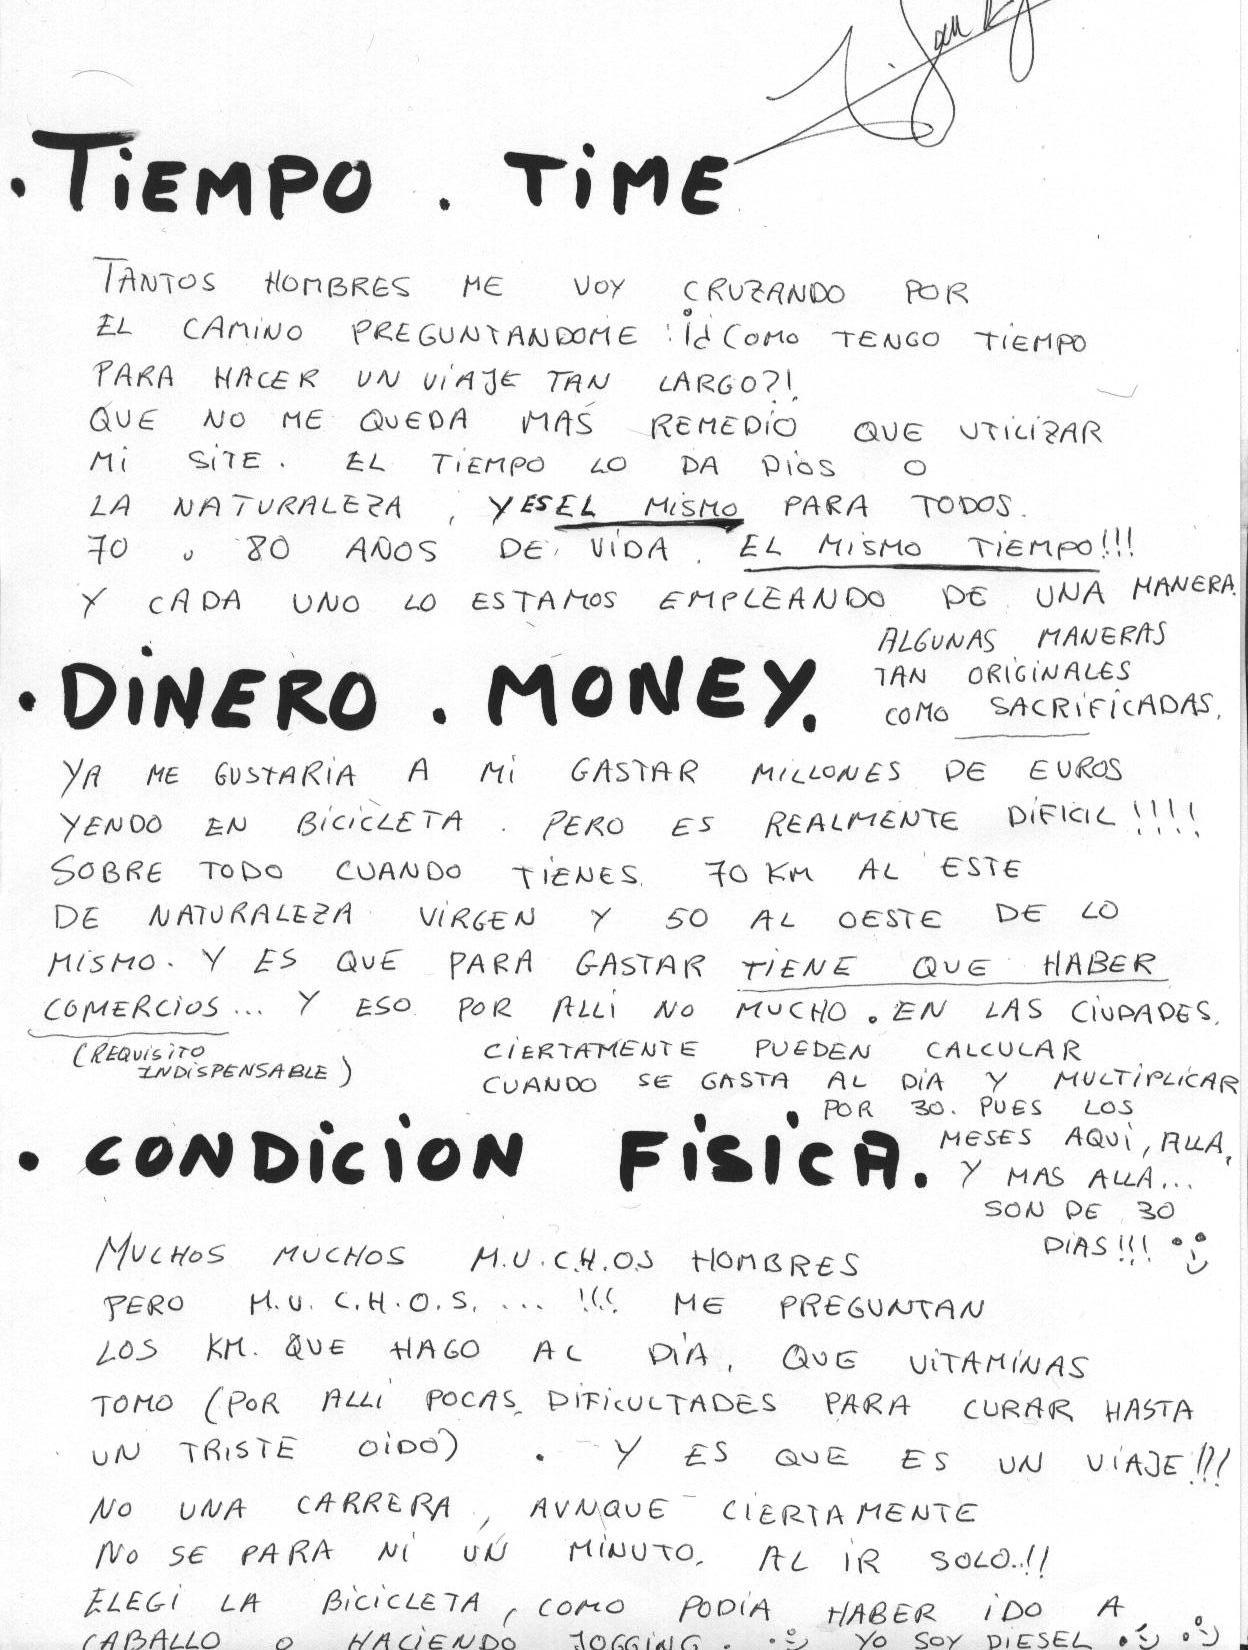 . TiEMPO . TiME
TANTOS HOMBRES ME VOY CRUZANDO POR
EL CAMiNO PREGUNTANDOME : ¡¿COMO TENGO TiEMPO
PARA HACER UN ViAJE TAN LARGO?!
QUE NO ME QUEDA MAS REMEDiO QUE UTiLiZAR
Mi SiTE. EL TiEMPO LO DA DiOS O
LA NATURALEZA, Y ES EL MiSMO PARA TODOS.
70 u 80 AÑOS DE ViDA. EL MiSMO TiEMPO!!!
Y CADA UNO LO ESTAMOS EMPLEANDO DE UNA MANERA.
ALGUNAS MANERAS
TAN ORiGiNALES
COMO SACRiFiCADAS.
. DiNERO . MONEY.
YA ME GUSTARiA A Mi GASTAR MiLLONES DE EUROS
YENDO EN BiCiCLETA. PERO ES REALMENTE DiFiCiL!!!!
SOBRE TODO CUANDO TiENES 70 KM AL ESTE
DE NATURALEZA ViRGEN Y 50 AL OESTE DE LO
MiSMO. Y ES QUE PARA GASTAR TiENE QUE HABER
COMERCiOS... Y ESO POR ALLi NO MUCHO. EN LAS CiUDADES.
(REQUiSiTO
INDiSPENSABLE)
CiERTAMENTE PUEDEN CALCULAR
CUANDO SE GASTA AL DiA Y MULTiPLiCAR
POR 30. PUES LOS
MESES AQUi, ALLA,
Y MAS ALLA...
SON DE 30
DiAS!!!
. CONDiCiON FiSiCA.
MUCHOS MUCHOS M.U.C.H.O.S HOMBRES
PERO M.U.C.H.O.S.... !!! ME PREGUNTAN
LOS KM. QUE HAGO AL DiA, QUE ViTAMiNAS
TOMO (POR ALLi POCAS, DiFiCULTADES PARA CURAR HASTA
UN TRiSTE OiDO) . Y ES QUE ES UN ViAJE!!!
NO UNA CARRERA, AUNQUE CiERTAMENTE
NO SE PARA Ni UN MiNUTO, AL iR SOLO..!!
ELEGi LA BiCiCLETA, COMO PODiA HABER iDO A
CABALLO O HACiENDO JOGGiNG. YO SOY DiESEL